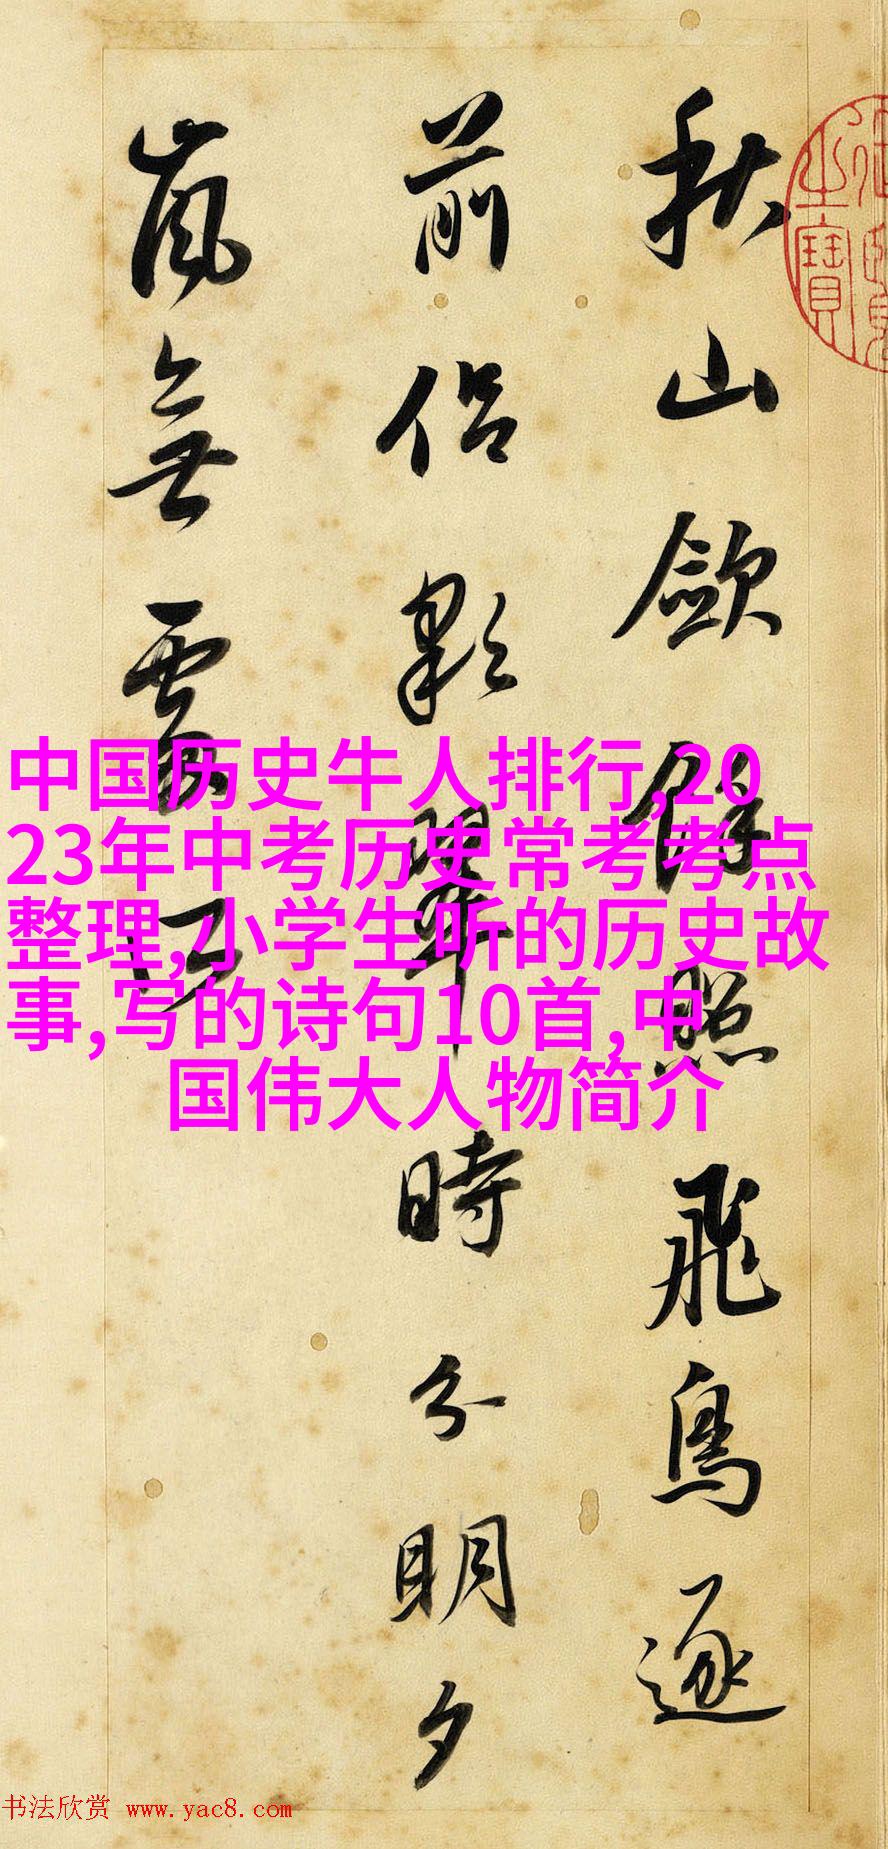 秋山歛餘照飛鳥逐
前侣彩翠時分明夕
嵐無處所
之寶
中国历史牛人排行,20
23年中考历史常考考点
整理,小学生听的历史故
事,写的诗句10首,中
国伟大人物简介
书法欣赏 www.yac8.com